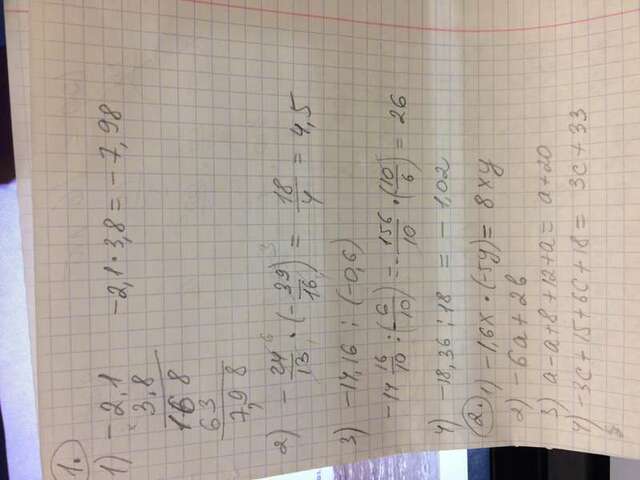 1.
1) -2,1 -2,1·3,8 = -7,98
× 3,8
168
63
7,98
2) - 24/13 · (- 39/16) = 18/4 = 4,5
3) -14,16 : (-0,6)
-14 16/10 : (- 6/10) = - 156/10 · (- 10/6) = 26
4) -18,36 : 18 = -1,02
2. 1) -1,6x · (-5y) = 8xy
2) -6a+2b
3) a-a+8+12+a = a+20
4) -3c+15+6c+18 = 3c+33